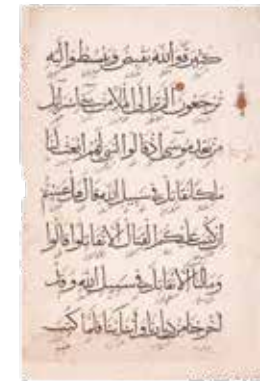 كثيرة والله يقبض ويبسط واليه
ترجعون الم تر الى الملا من بني اسرائيل
من بعد موسى اذ قالوا لنبي لهم ابعث لنا
ملكا نقاتل في سبيل الله قال هل عسيتم
ان كتب عليكم القتال الا تقاتلوا قالوا
وما لنا الا نقاتل في سبيل الله وقد
اخرجنا من ديارنا وابنائنا فلما كتب